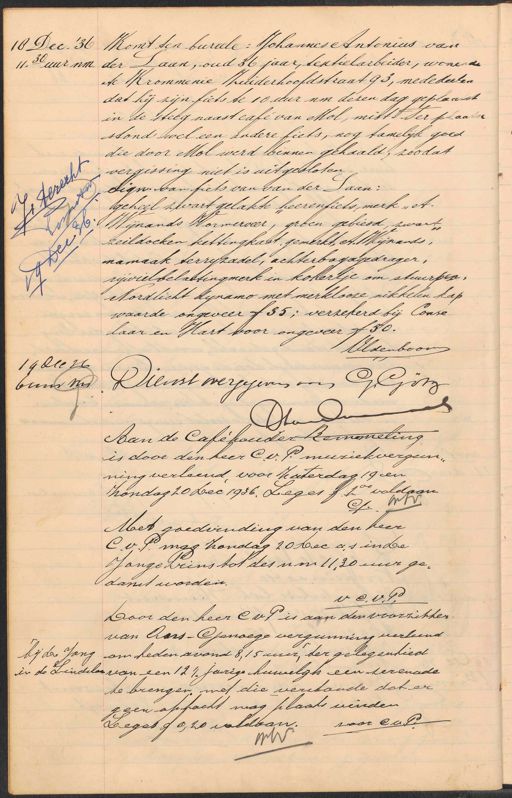 18 Dec. '36
11.30 uur nm
Komt ten bureele: Johannes Antonius van
der Laan, oud 36 jaar, textielarbeider, wonende
te Krommenie Zuiderhoofdstraat 93, mededelen
dat hij zijn fiets te 10 uur nm dezen dag geplaatst
in de steeg naast café van Mol, mist. Ter plaatse
stond wel een andere fiets, nog tamelijk goed
die door Mol werd binnen gehaald, zoodat
vergissing niet is uitgesloten.
Sign. van fiets van van der Laan:
geheel zwart gelakte heerenfiets, merk
Wijnands Wormerveer, groen gebiesd, zwart
zeildoeken kettingkast, gemerkt Wijnands,
terryzadel, achterbagagedrager,
rijwielbelastingmerk in kokertje om stuurpen,
Nordlicht dynamo met merklooze nikkelen lap
waarde ongeveer ƒ 55; verzekerd bij
laar en Hart voor ongeveer ƒ 50.
is terecht
19 Dec 36.
19 Dec 36
Dienst overgegeven aan G. Götz
Aan de Caféhouder
is door den heer C.v.P. muziekvergun-
ning verleend, voor Zaterdag 19 en
Zondag 20 Dec 1936. Leges voldaan
Met goedvinding van den heer
C.v.P. mag Zondag 20 Dec a.s. in de
Jonge Prins tot des nm 11,30 uur ge-
danst worden.
v C.v.P.
Door den heer C.v.P. is aan den voorzitter
van vergunning verleend
om heden avond 8,15 uur, ter gelegenheid
van een 12½ jarig huwelijk een serenade
te brengen, met die verstande dat er
geen optocht mag plaats vinden
Leges ƒ 0,20 voldaan. voor C.v.P.
bij de Jong
in de Lindelaan